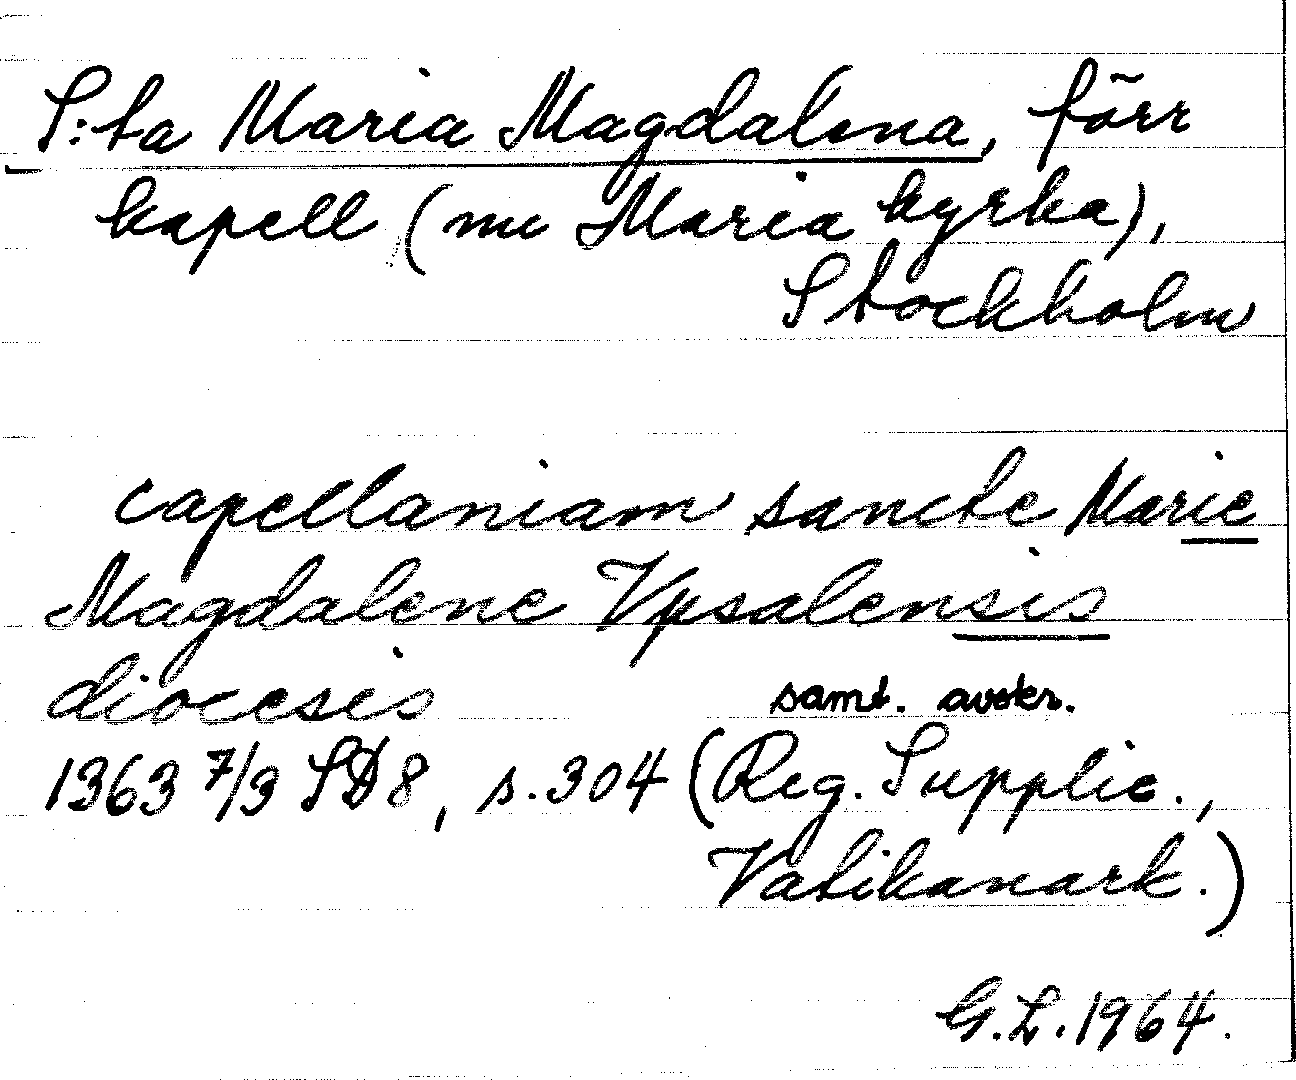 S:ta Maria Magdalena, förr
kapell (nu Maria kyrka),
Stockholm
capellaniam sancte Marie
Magdalene Vpsalensis
diocesis
samt. avskr.
1363 7/3 SD 8, s. 304 (Reg. Supplic.,
Vatikanark.)
G.L. 1964.